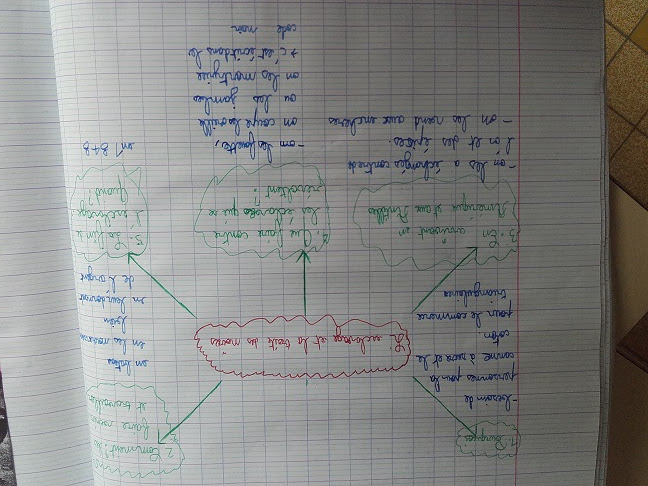 L'esclavage et la traite des noires
1. Pourquoi
- besoin de
personnes pour la
canne à sucre et le
coton
pour le commerce
triangulaires
2. Comment? les
faire venir
et travailler
en
en les
bien
en leur donnant
de l'argent
3. En arrivant en
Amerique et aux Antilles
- on les a échangés contre de
l'or et des épices.
- on les vend aux encheres
4. Que faire contre
les esclaves qui se
revoltent?
- on les fouette,
on coupe
ou les jambes
on les martyrise
→ c'est écrit dans le
code noir
5. La fin
l'esclavage
quand?
en 1848